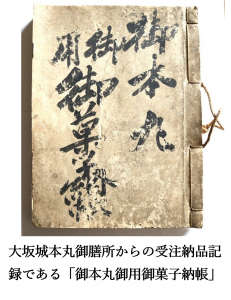 御本丸
御用
御菓子納帳
大坂城本丸御膳所からの受注納品記
録である「御本丸御用御菓子納帳」